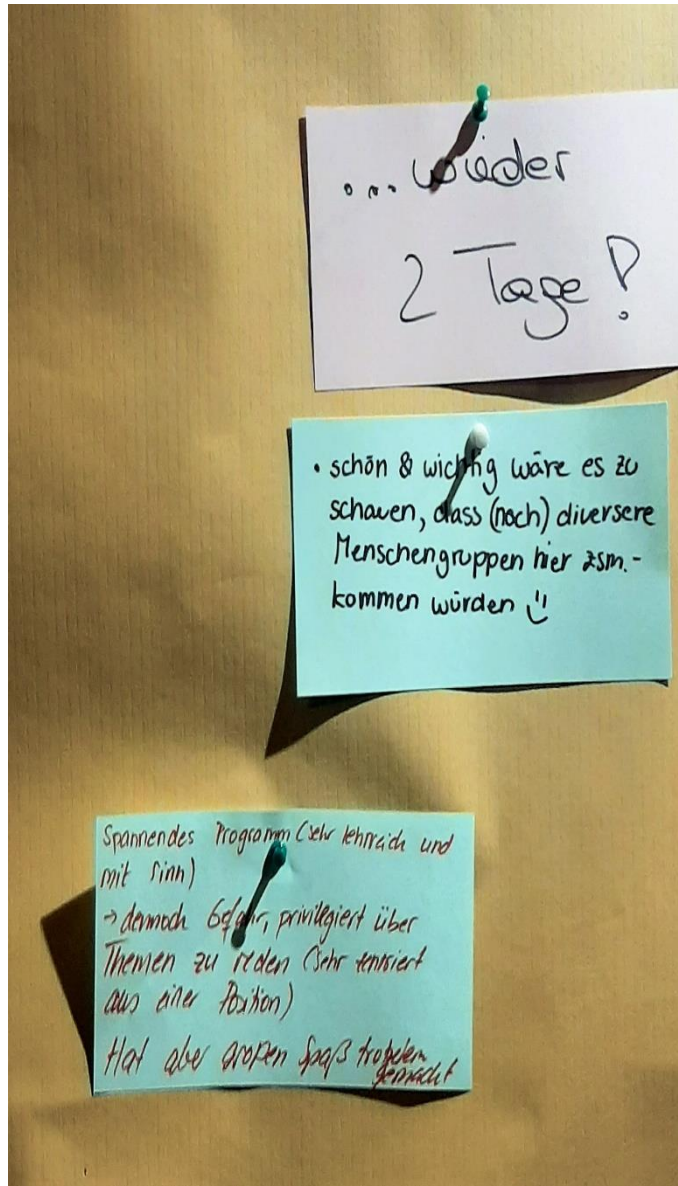 ... wieder
2 Tage!
• schön & wichtig wäre es zu
schauen, dass (noch) diversere
Menschengruppen hier zsm.-
kommen würden
Spannendes Programm (sehr lehrreich und
mit Sinn)
→ dennoch Gefahr, privilegiert über
Themen zu reden (sehr
aus einer Position)
Hat aber großen Spaß trotzdem
gemacht